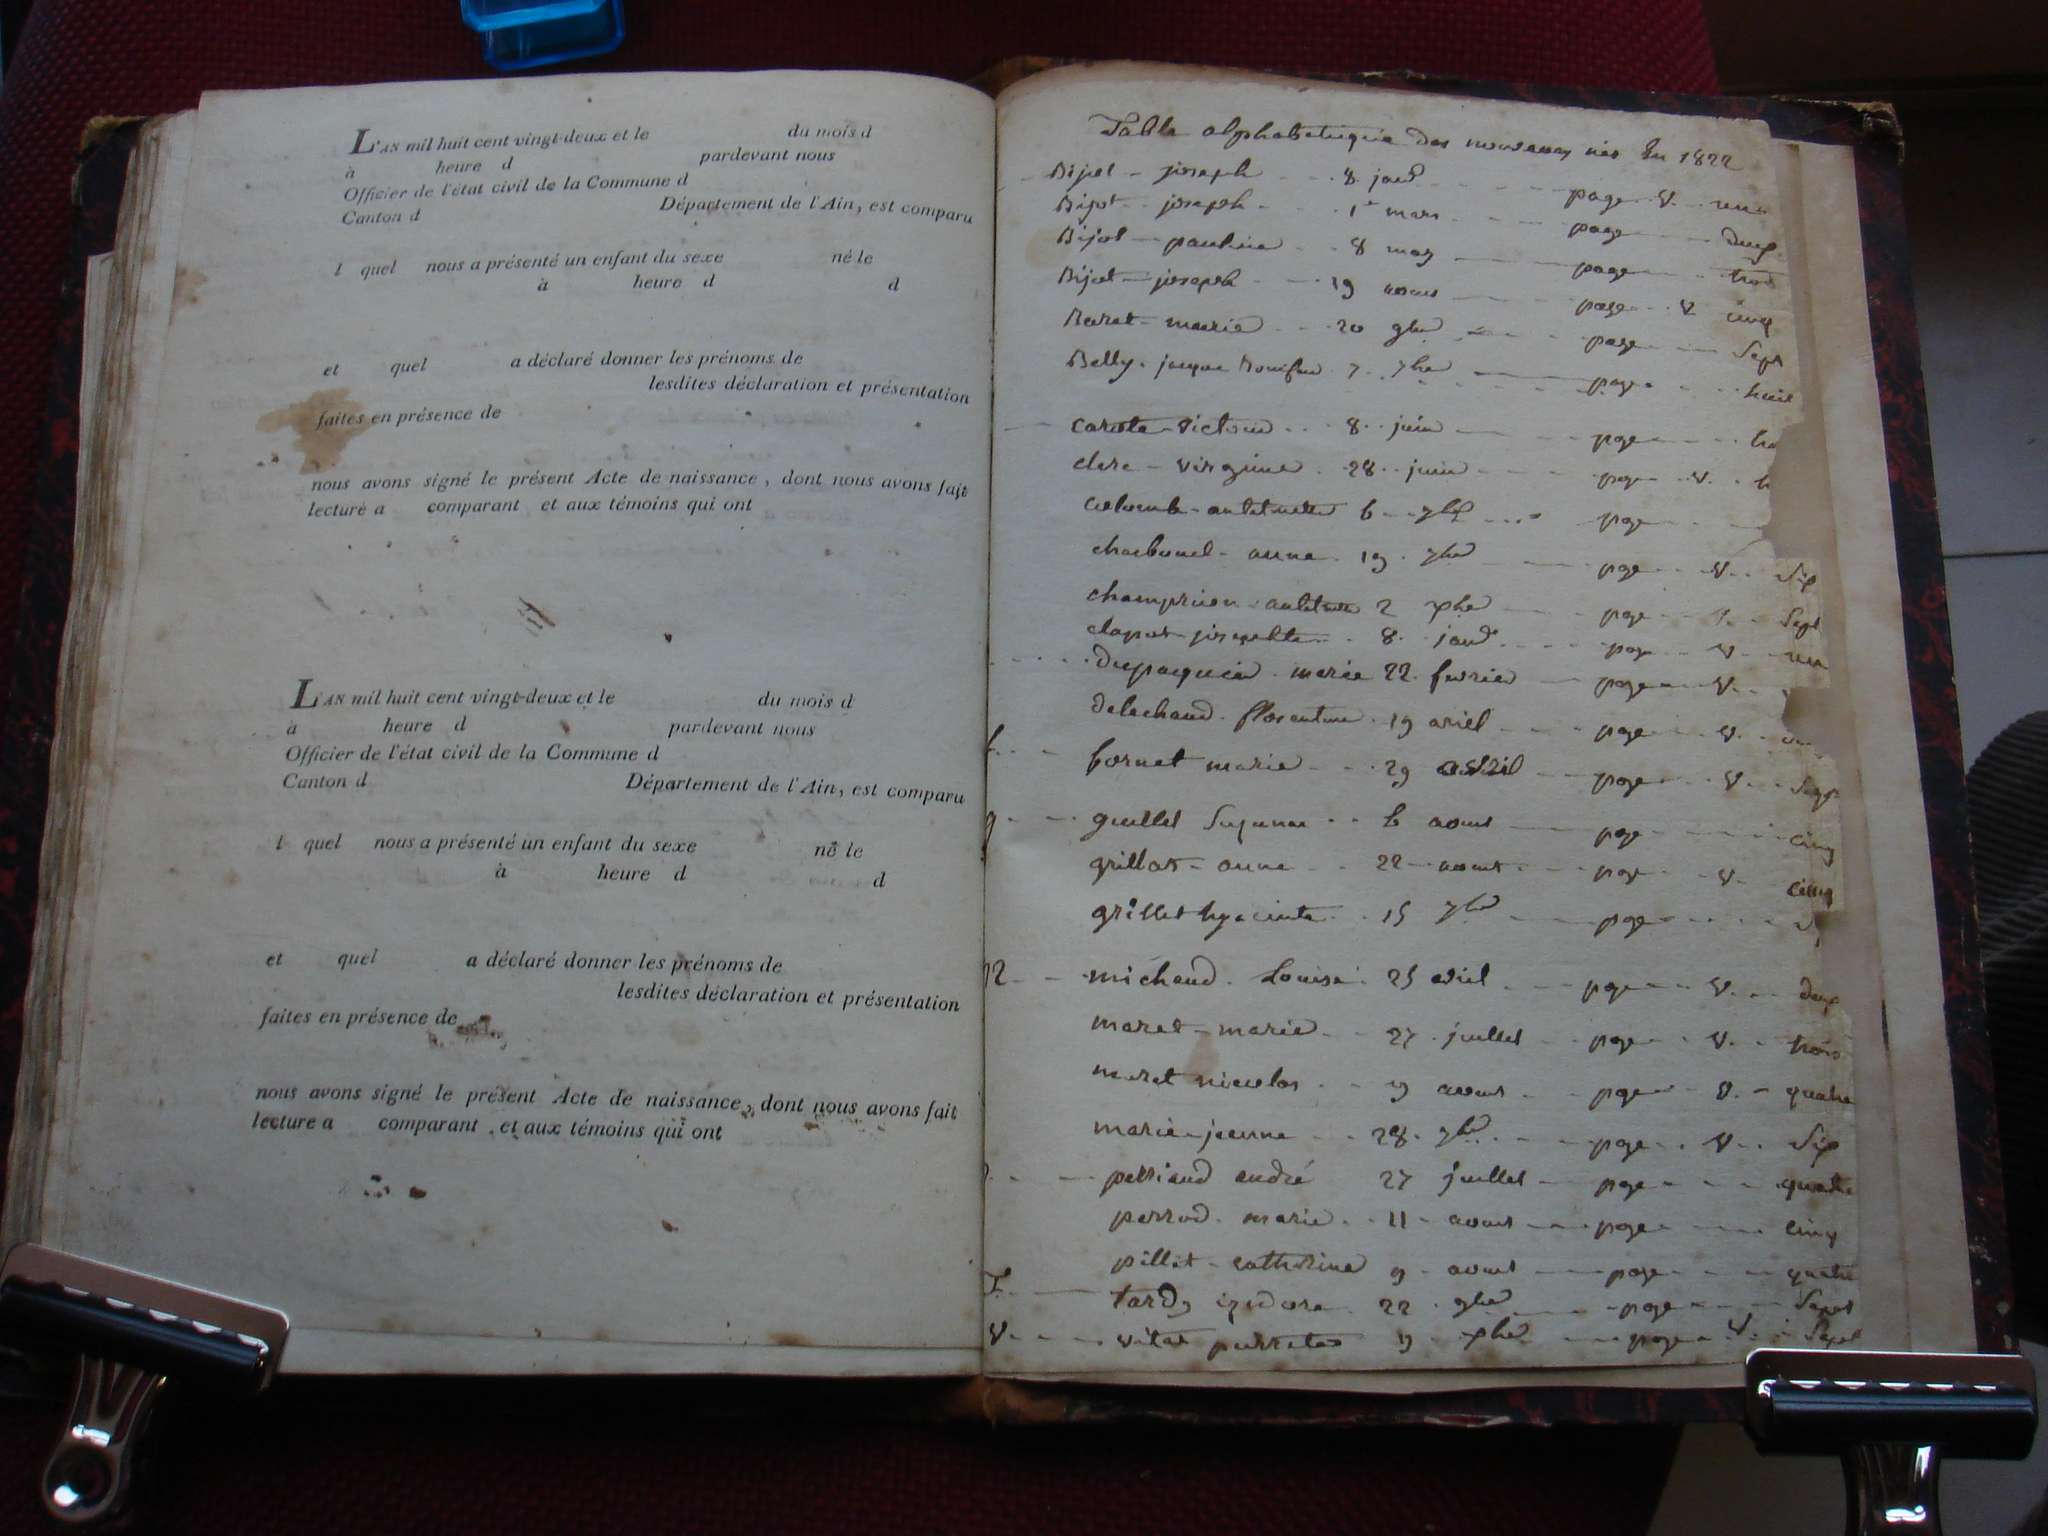 L'AN mil huit cent vingt-deux et le du mois d
à heure d pardevant nous
Officier de l'état civil de la Commune d
Canton d Département de l'Ain, est comparu
l quel nous a présenté un enfant du sexe né le
à heure d d
et quel a déclaré donner les prénoms de
lesdites déclaration et présentation
faites en présence de
nous avons signé le présent Acte de naissance, dont nous avons fait
lecture a comparant et aux témoins qui ont
L'AN mil huit cent vingt-deux et le du mois d
à heure d pardevant nous
Officier de l'état civil de la Commune d
Canton d Département de l'Ain, est comparu
l quel nous a présenté un enfant du sexe né le
à heure d d
et quel a déclaré donner les prénoms de
lesdites déclaration et présentation
faites en présence de
nous avons signé le présent Acte de naissance, dont nous avons fait
lecture a comparant et aux témoins qui ont
Table alphabetique des nouveaux nés en 1822
Bijot - joseph - - 8 page v.
Bijot - joseph - - 1er mars - - page - deux
Bijot - pauline - - 8 may - page - trois
Bijot - joseph - - 19 aout - page - v cinq
marie - - 20 9bre - - page - Sept
Belly - jacque 7. 7bre - page - - huit
victoire - - 8 - juin - page
clerc - virginie - 28 - juin - page - v.
colomb - antoinette 6 - 7bre - page
charbonel - anne - 19 - 7bre - page - v. Six
2 page - Sept
8 page - v
marie 22 fevrier - page - v.
florentine - 19 avril - page - v.
f fornet marie - - 29 avril - page - v.
g guillet Suzanne - - 6 aout - page - cinq
grillat - anne - - 22 - aout - page - v. cinq
grillet hyacinte - - 15 7bre - page
michaud - Louise - 25 avril - page - v. - deux
maret - marie - - 27 - juillet - page - v. - trois
maret nicolas - - 9 aout - page - v. - quatre
marie - jeanne - - 28 - 7bre - page - v. Six
perriaud andré 27 juillet - page - quatre
perrod - marie - - 11 - aout - page - cinq
pillet - catherine 9 - aout - page - quatre
T tardy izidore - 22 - 9bre - page - Sept
v - 9 - page - v. - Sept